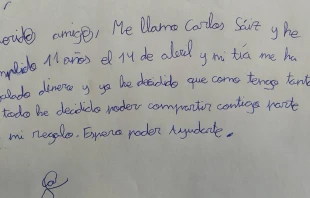 erid@ amig@, Me llamo Carlos Sáiz y he
mplido 11 años el 14 de abril y mi tía me ha
galado dinero y yo he decidido que como tengo tant
todo he decidido poder compartir contigo parte
mi regalo. Espero poder Ayudarte.